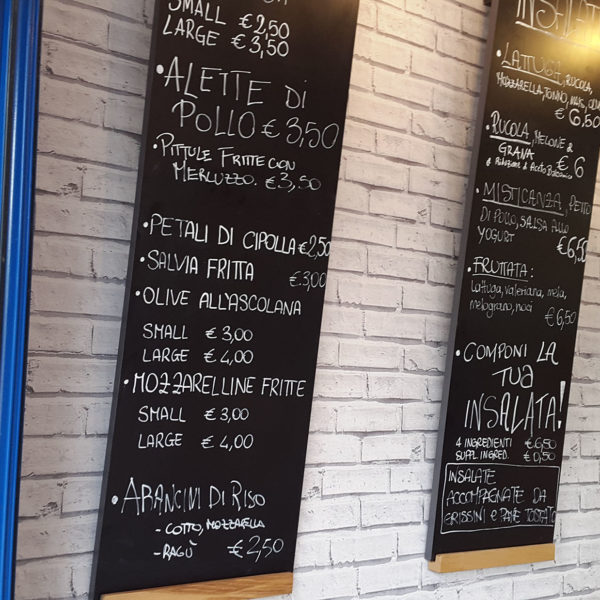 SMALL €2,50
LARGE €3,50
• ALETTE DI
POLLO €3,50
• PITTULE FRITTE CON
MERLUZZO. €3,50
• PETALI DI CIPOLLA €2,50
• SALVIA FRITTA €3,00
• OLIVE ALL'ASCOLANA
SMALL €3,00
LARGE €4,00
• MOZZARELLINE FRITTE
SMALL €3,00
LARGE €4,00
• ARANCINI DI RISO
- COTTO, MOZZARELLA
- RAGÙ €2,50
INSALAT
• LATTUGA, RUCOLA,
MOZZARELLA, TONNO, MAIS,
€6,50
• RUCOLA, MELONE &
GRANA €6
& Riduzione di Aceto Balsamico
• MISTICANZA, PETTO
DI POLLO, SALSA ALLO
YOGURT €6,50
• FRUTTATA:
Lattuga, valeriana, mela,
melograno, noci
€6,50
• COMPONI LA
TUA
INSALATA!
4 INGREDIENTI €6,50
SUPPL. INGRED. €0,50
INSALATE
ACCOMPAGNATE DA
GRISSINI e PANE TOSTATO